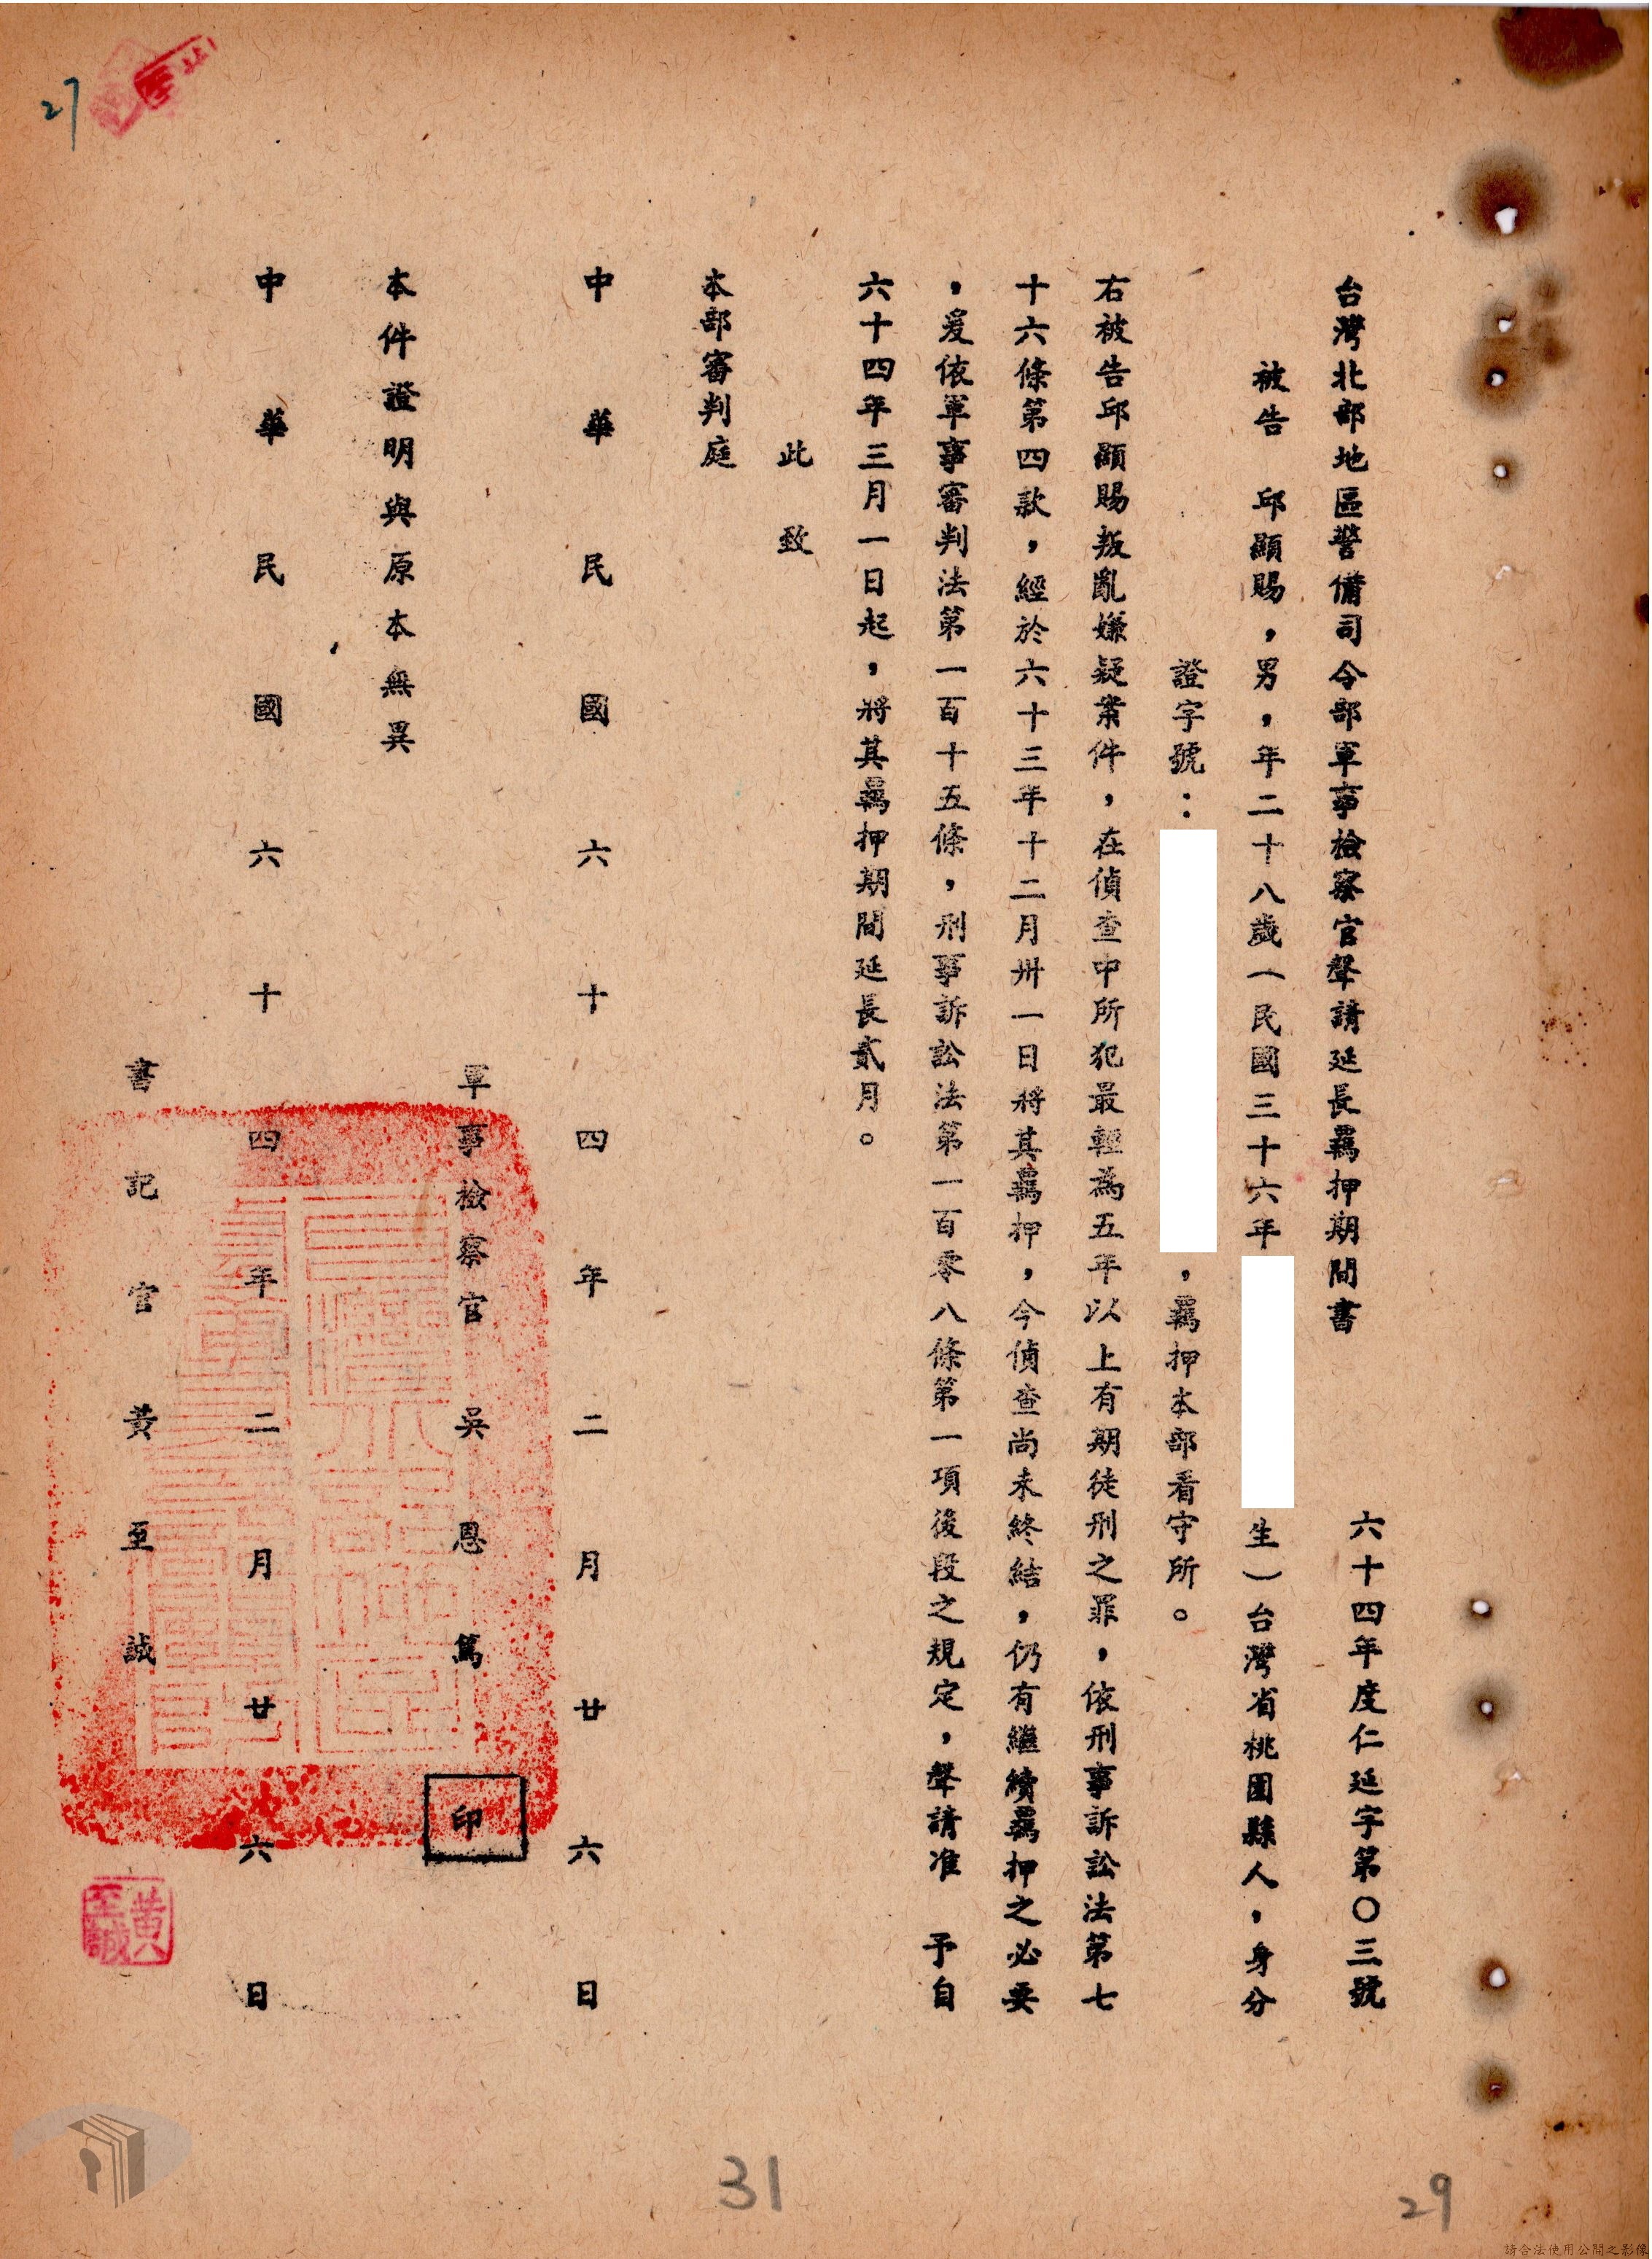 台灣北部地區警備司令部軍事檢察官聲請延長羈押期間書
六十四年度仁延字第〇三號
被告　邱顯賜，男，年二十八歲（民國三十六年　生）台灣省桃園縣人，身分
證字號：　，羈押本部看守所。
右被告邱顯賜叛亂嫌疑案件，在偵查中所犯最輕為五年以上有期徒刑之罪，依刑事訴訟法第七
十六條第四款，經於六十三年十二月卅一日將其羈押，今偵查尚未終結，仍有繼續羈押之必要
，爰依軍事審判法第一百十五條，刑事訴訟法第一百零八條第一項後段之規定，聲請准　予自
六十四年三月一日起，將其羈押期間延長貳月。
此致
本部審判庭
中華民國六十四年二月廿六日
軍事檢察官吳恩篤
印
本件證明與原本無異
中華民國六十四年二月廿六日
書記官黃至誠
黃至誠
27
31
29
請合法使用公開之影像